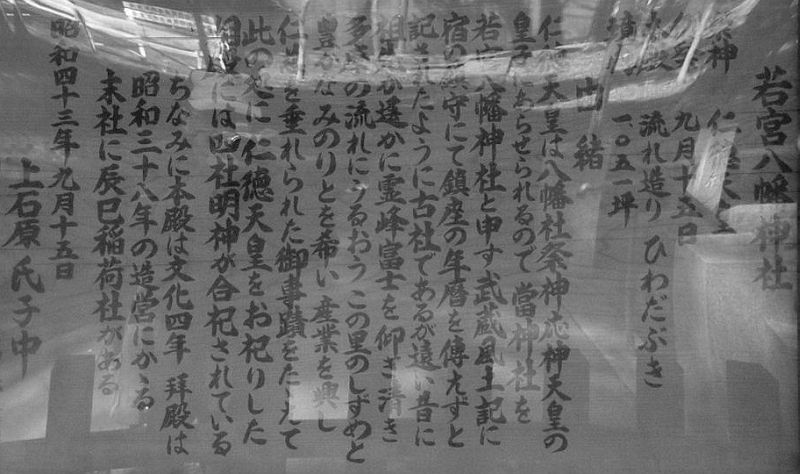 若宮八幡神社
祭神 仁
九月十五日
本殿 流れ造り ひわだぶき
境 一〇五一坪
由緒
仁徳天皇は八幡社祭神応神天皇の
皇子であらせられるので當神社を
若宮八幡神社と申す武蔵風土記に
宿の鎮守にて鎮座の年暦を傳えずと
記されたように古社であるが遠い昔に
祖 が遥かに霊峰富士を仰ぎ清き
多 の流れにうるおうこの里のしずめと
豊かなみのりとを希い産業を興し
仁 を垂れられた御事蹟をたたえて
此の処に仁徳天皇をお祀りした
には四社明神が合祀されている
ちなみに本殿は文化四年 拝殿は
昭和三十八年の造営にかゝる
末社に辰巳稲荷社がある
昭和四十三年九月十五日
上石原氏子中